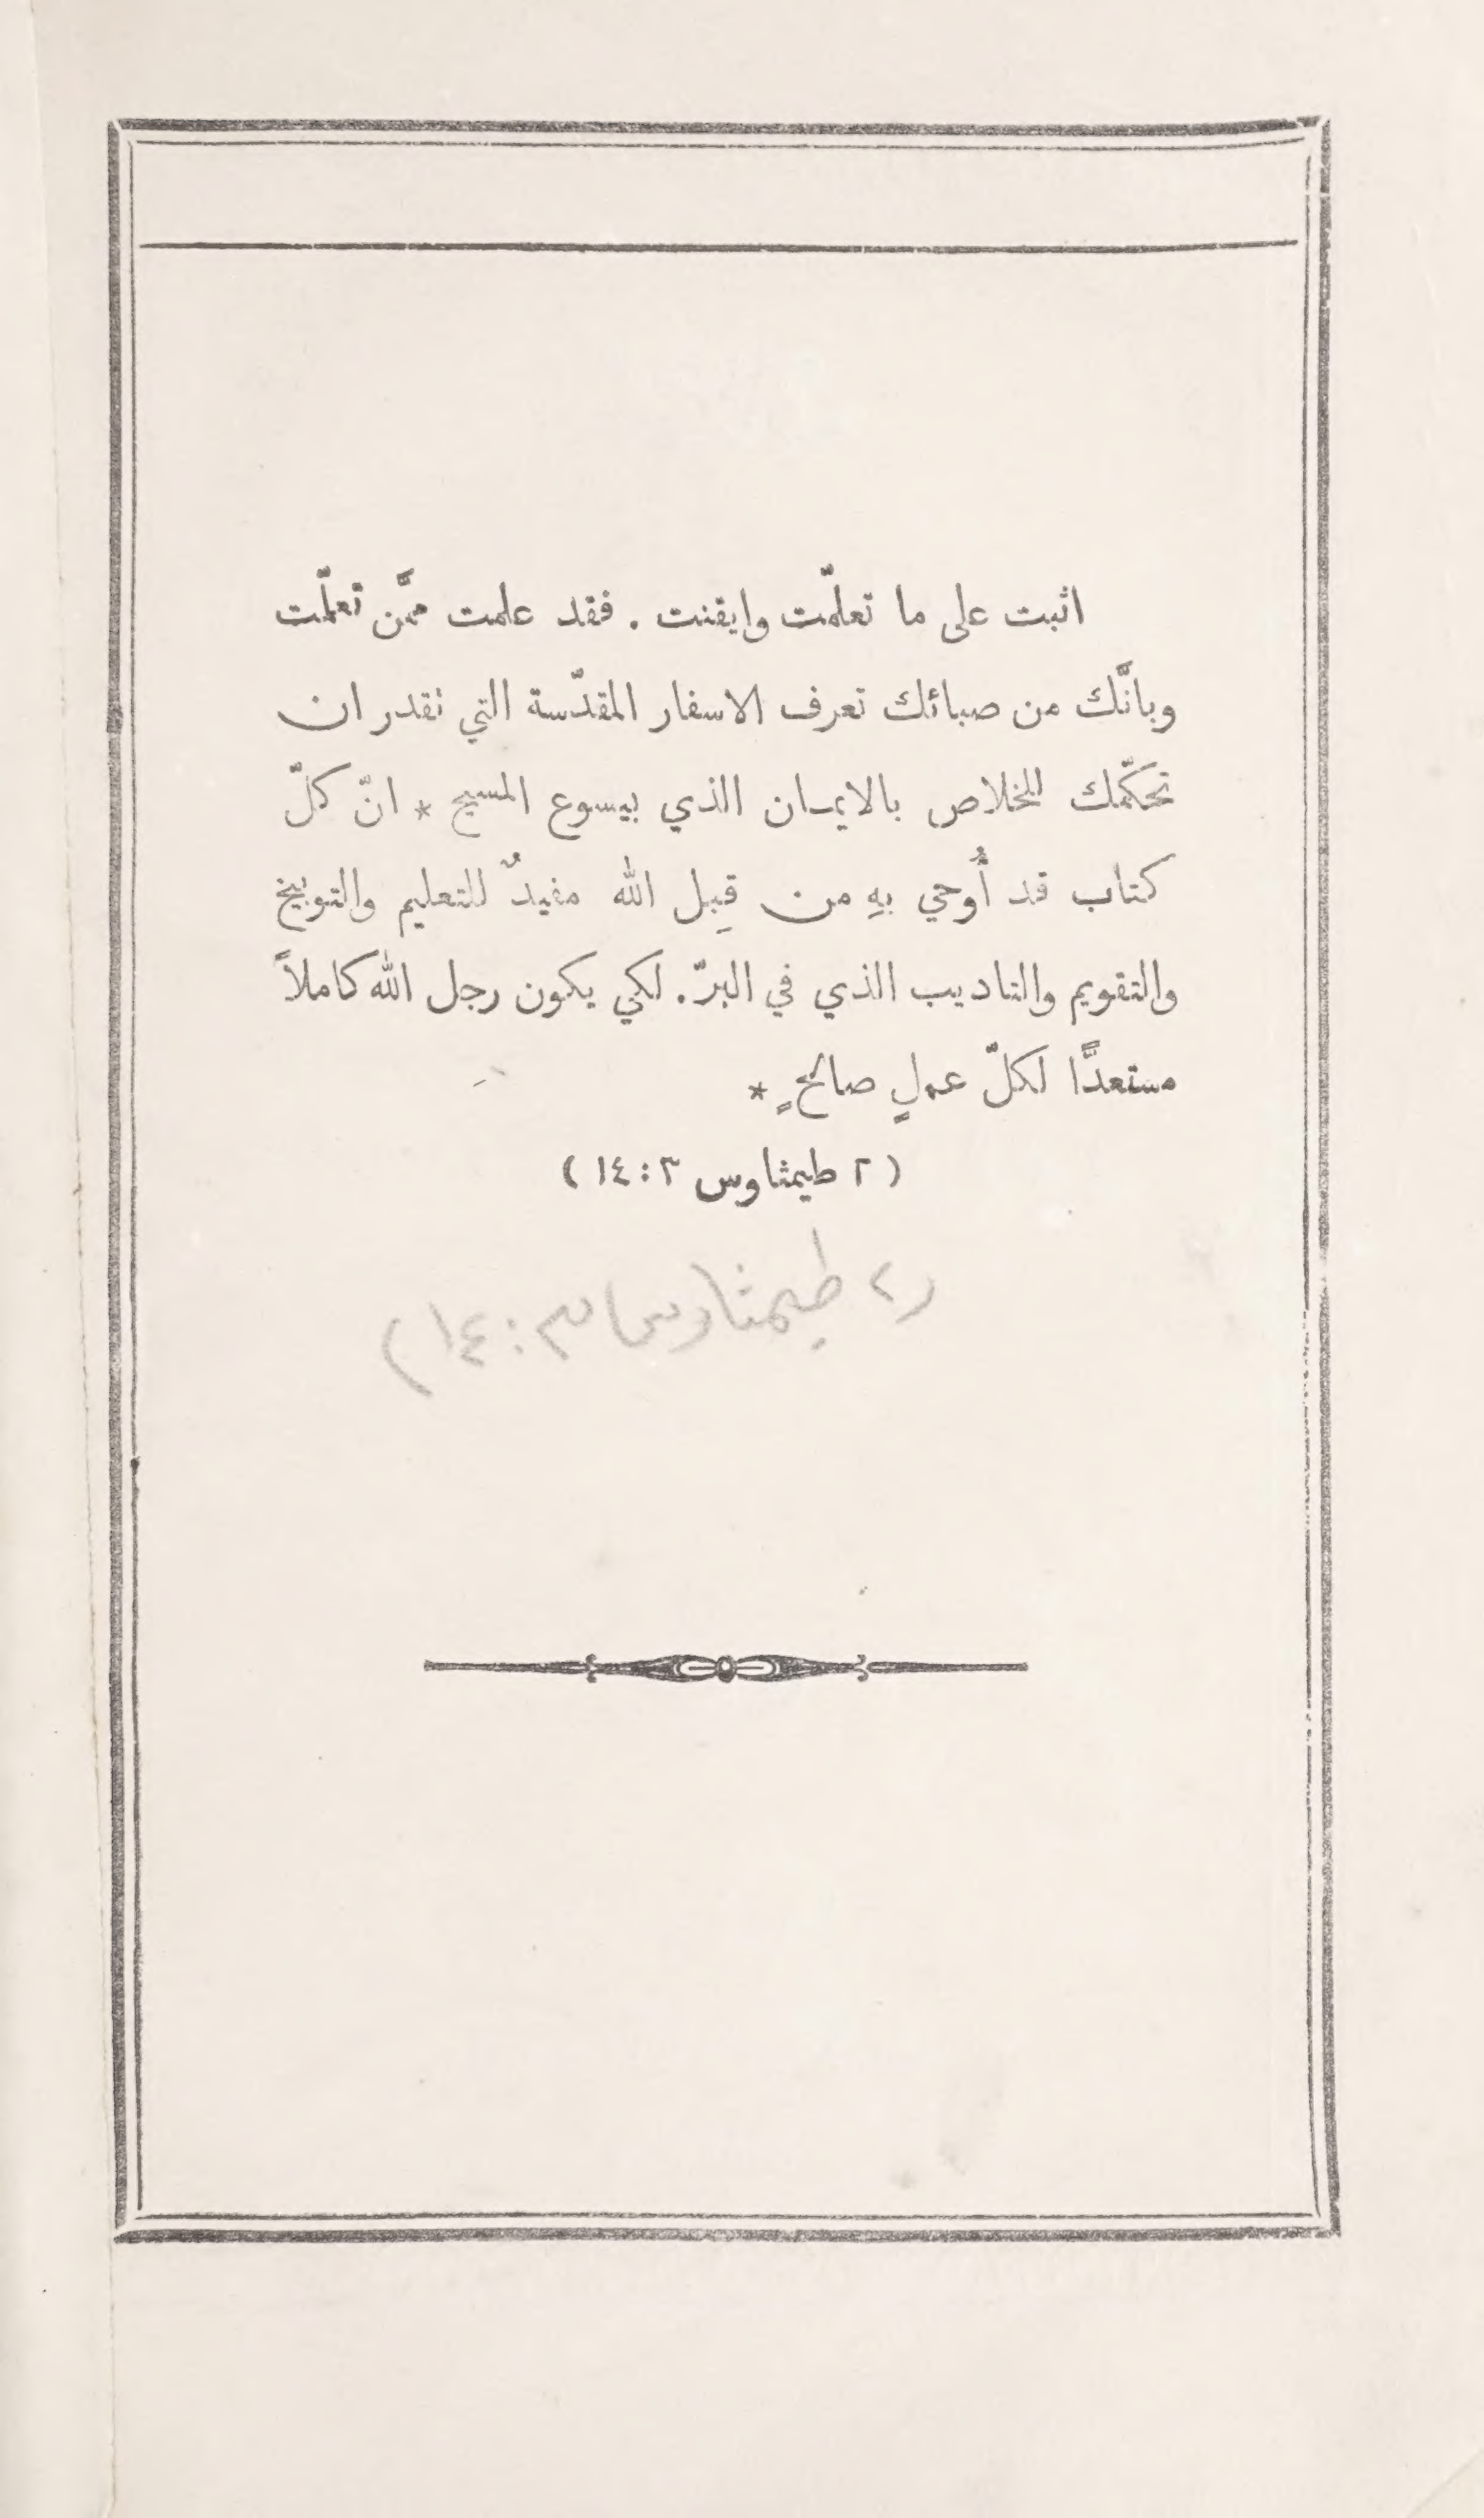 اثبت على ما تعلّمت وايقنت . فقد علمت ممَّن تعلّمت
وبانَّك من صبائك تعرف الاسفار المقدّسة التي نقدر ان
تحكّمك للخلاص بالايمان الذي بيسوع المسيح * انّ كلّ
كتاب قد أُوحي بهِ من قِبل الله مفيدٌ للتعليم والتوبيخ
والتقويم والتاديب الذي في البرّ. لكي يكون رجل الله كاملاً
مستعدًّا لكلّ عملٍ صالحٍ *
( ٢ طيمثاوس ٣ : ١٤ )
(٢ طيمثاوس ٣ : ١٤)